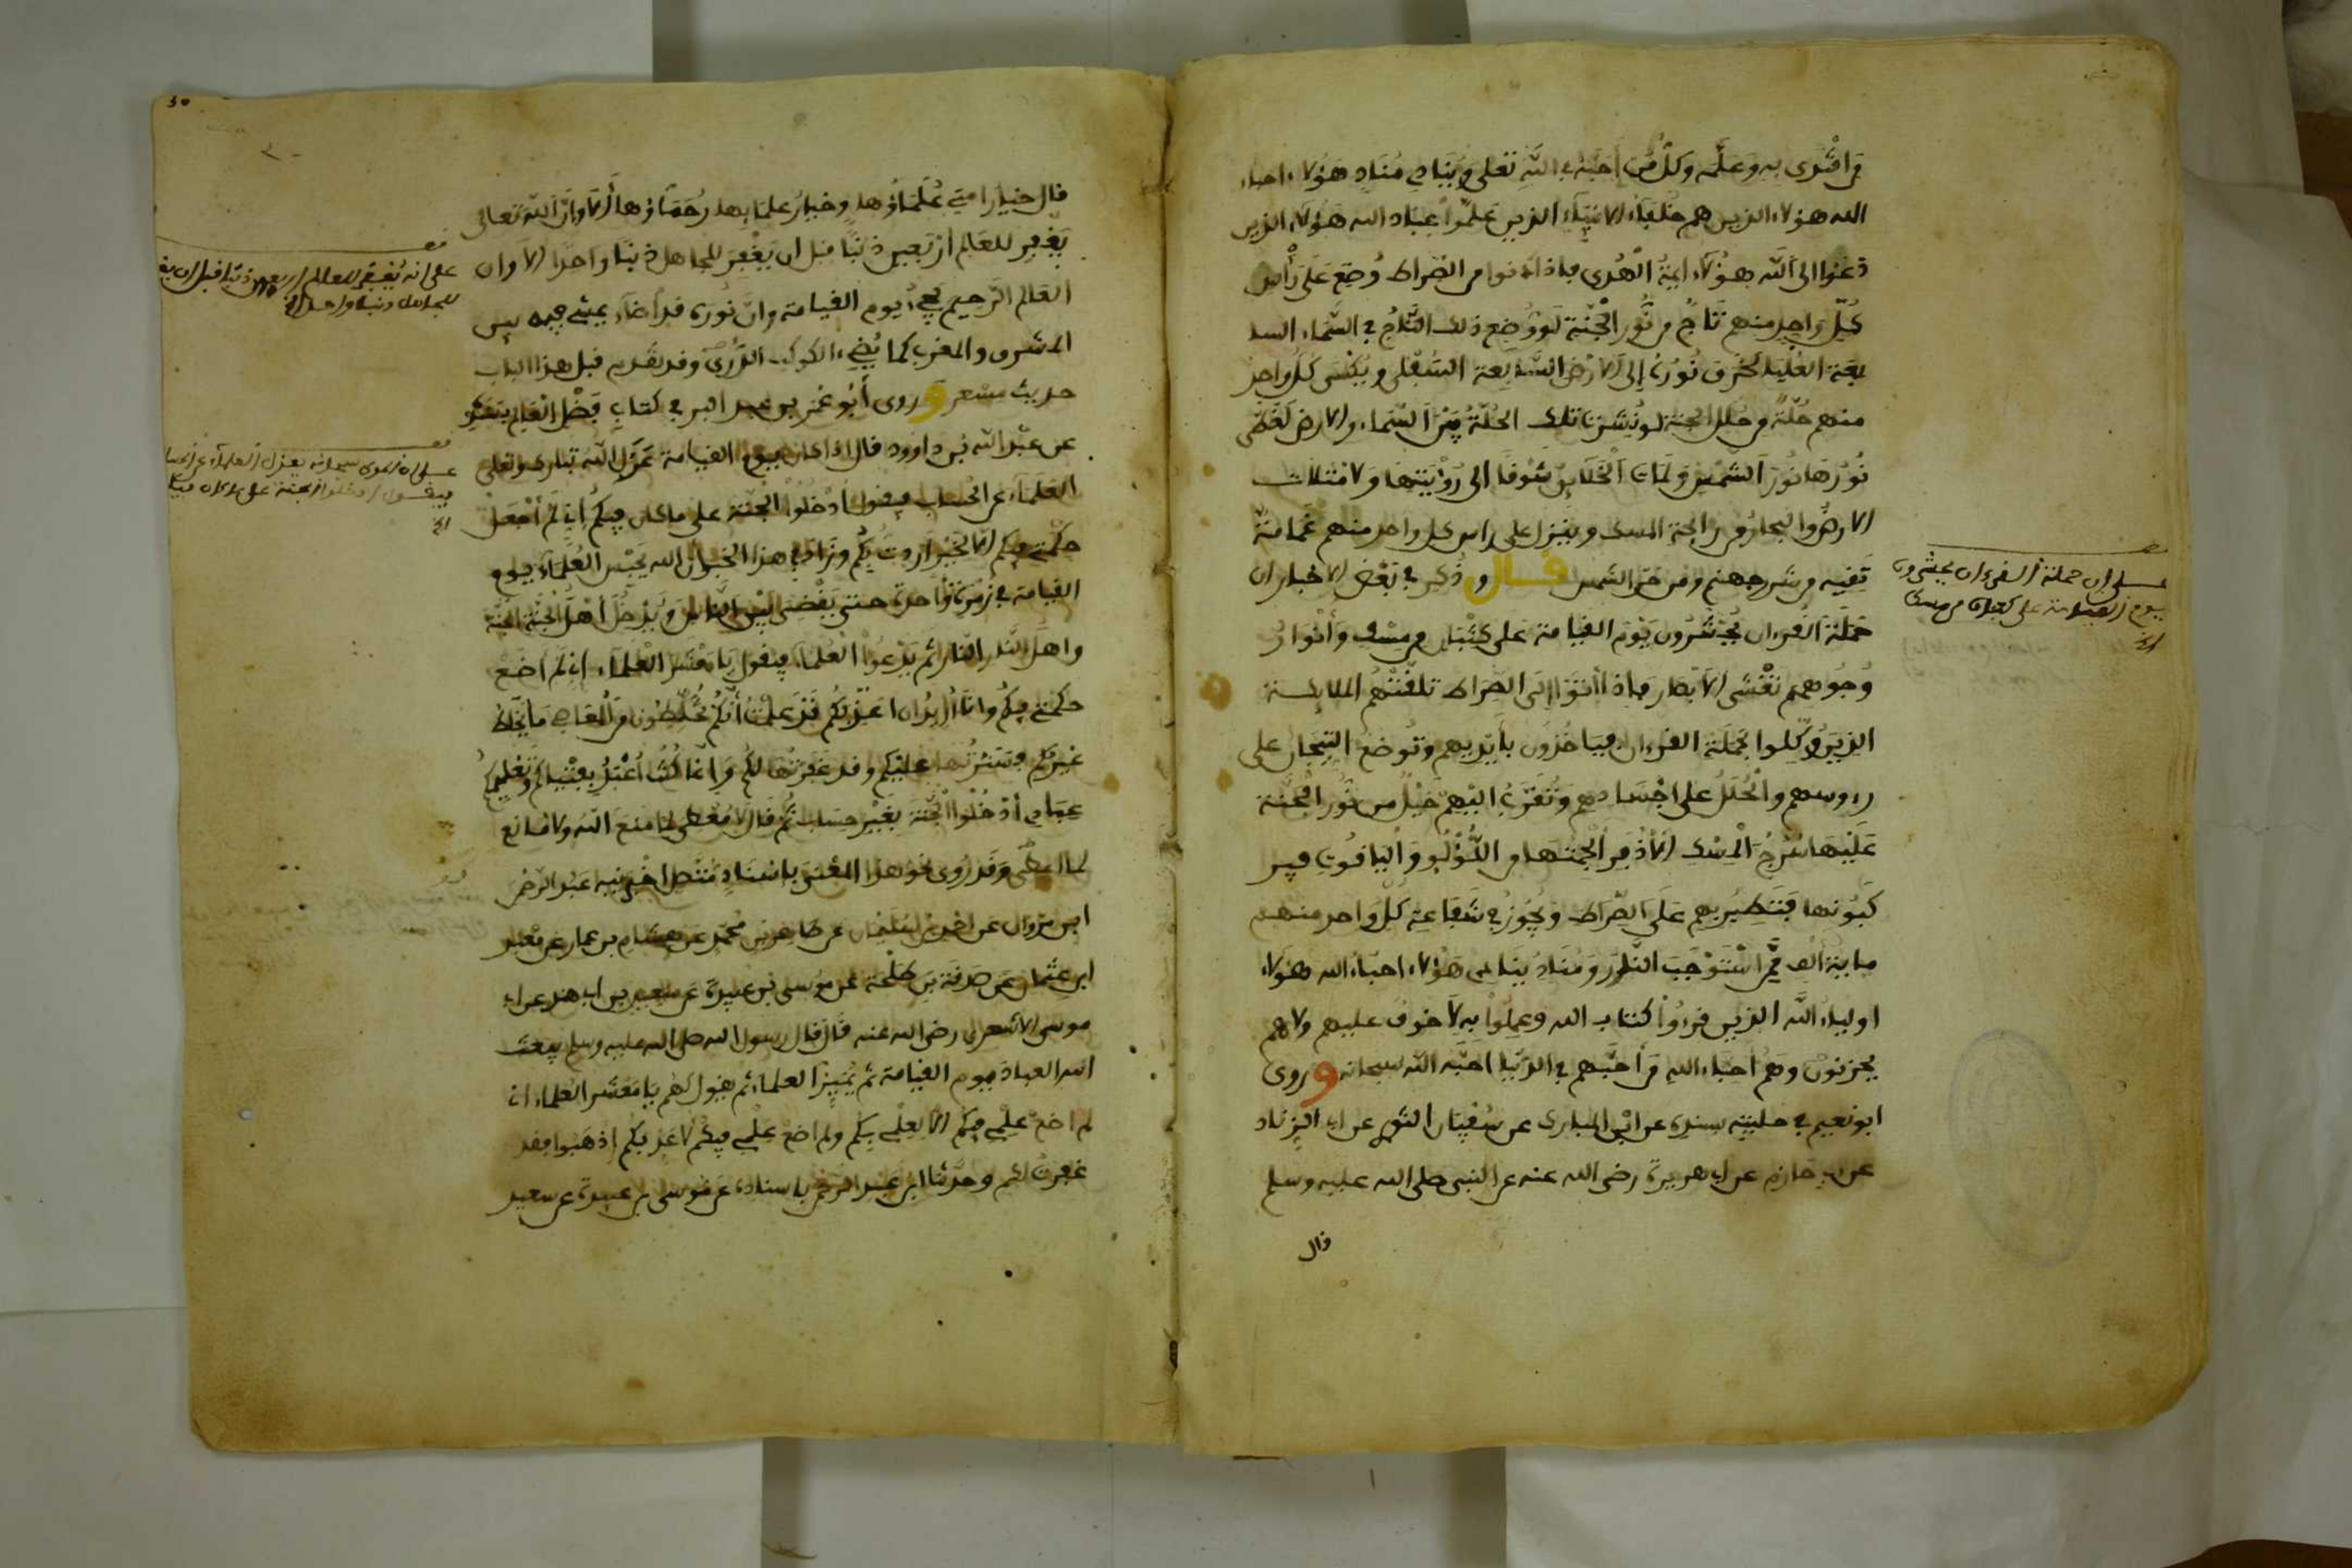 من اقتدى به وعلمه وكل من أحبه في الله تعلى وينادي مناد هؤلاء احباء
الله هؤلاء الذين هم خلفاء الانبياء الذين علموا عباد الله هؤلاء الذين
دعوا الى الله هؤلاء ايمة الهدى فاذا دنوا من الصراط وضع على رأس
كل واحد منهم تاج من نور الجنة لو وضع ذلك التاج في السماء السا
بعة العليا لخرق نوره إلى الارض السابعة السفلى ويكسى كل واحد
منهم حلة من حلل الجنة لو نشرت تلك الحلة بين السماء والارض لغطى
نورها نور الشمس ولمات الخلايق شوقا الى رؤيتها ولامتلات
الارض والبحار من رائحة المسك وينزل على راس كل واحد منهم غمامة
تقيه من شر جهنم ومن حر الشمس قال وذكر في بعض الاخبار ان
حملة القرءان يحشرون يوم القيامة على كثبان من مسك وأنوار
وجوههم تغشى الابصار فاذا أتوا إلى الصراط تلقتهم الملايكة
الذين وكلوا بحملة القرءان فياخذون بأيديهم وتوضع التيجان على
رءوسهم والحلل على اجسادهم وتقرب اليهم خيل من نور الجنة
عليها سرج المسك الاذفر ألجمتها من اللؤلؤ والياقوت فير
كبونها فتطير بهم على الصراط ويجوز في شفاعة كل واحد منهم
ماية ألف ممن استوجب النار ومناد ينادي هؤلاء احباء الله هؤلاء
اولياء الله الذين قرءوا كتاب الله وعملوا به لا خوف عليهم ولا هم
يحزنون وهم احباء الله من أحبهم في الدنيا أحبه الله سبحانه وروى
ابو نعيم في حليته بسنده عن ابن المبارك عن سفيان الثوري عن ابي الزناد
عن ابي حازم عن ابي هريرة رضى الله عنه عن النبي صلى الله عليه وسلم
قال
على ان حملة القرءان يحشرون
يوم القيامة على كثبان من مسك
الخ
قال خيار امتي علماؤها وخيار علمايها رحماؤها ألا وان الله تعالى
يغفر للعالم أربعين ذنبا قبل ان يغفر للجاهل ذنبا واحدا الا وان
العالم الرحيم يجيء يوم القيامة وان نوره قد أضاء يمشي فيه بين
المشرق والمغرب كما يضيء الكوكب الدري وقد تقدم قبل هذا الباب
حديث مسعر وروى أبو عمر بن عبد البر في كتاب فضل العلم
عن عبد الله بن داوود قال اذا كان يوم القيامة عزل الله تبارك وتعلى
العلماء عن الحساب فيقول أدخلوا الجنة على ما كان فيكم إني لم أجعل
حكمتي فيكم الا لخير اردت بكم وزاد في هذا الخبر ان الله يحبس العلماء يوم
القيامة في زمرة واحدة حتى يقضى بين الناس ويدخل أهل الجنة الجنة
واهل النار النار ثم يدعوا العلماء فيقول يا معشر العلماء إني لم اضع
حكمتي فيكم وانا أريد ان اعذبكم قد علمت أنكم تخلطون من المعاصي ما يخلط
غيركم فسترتها عليكم وقد غفرتها لكم وانما كنت أعبد بفتياكم وتعليمكم
عبادي أدخلوا الجنة بغير حساب ثم قال لا معطى لما منع الله ولا مانع
لما اعطى وقد روى نحو هذا المعنى باسناد متصل اخبرنيه عبد الرحمن
ابن مروان عن احمد بن سليمان عن طاهر بن محمد عن هشام بن عمار عن معبد
ابن عثمان عن صدقة بن طلحة عن موسى بن عبيدة عن سعيد بن ابي هند عن ابي
موسى الاشعري رضى الله عنه قال قال رسول الله صلى الله عليه وسلم يبعث
الله العباد يوم القيامة ثم يميز العلماء ثم يقول لهم يا معشر العلماء اني
لم اضع علمي فيكم الا لعلمي بكم ولم اضع علمي فيكم لاعذبكم إذهبوا فقد
غفرت لكم وحدثنا ابن عبد الرحمن باسناده عن موسى بن عبيدة عن سعيد
على انه يغفر للعالم اربعون ذنبا قبل ان يغفر
للجاهل ذنبا واحدا الخ
على ان المولى سبحانه يعزل العلماء عن الحساب
فيقول ادخلوا الجنة على ما كان فيكم
الخ